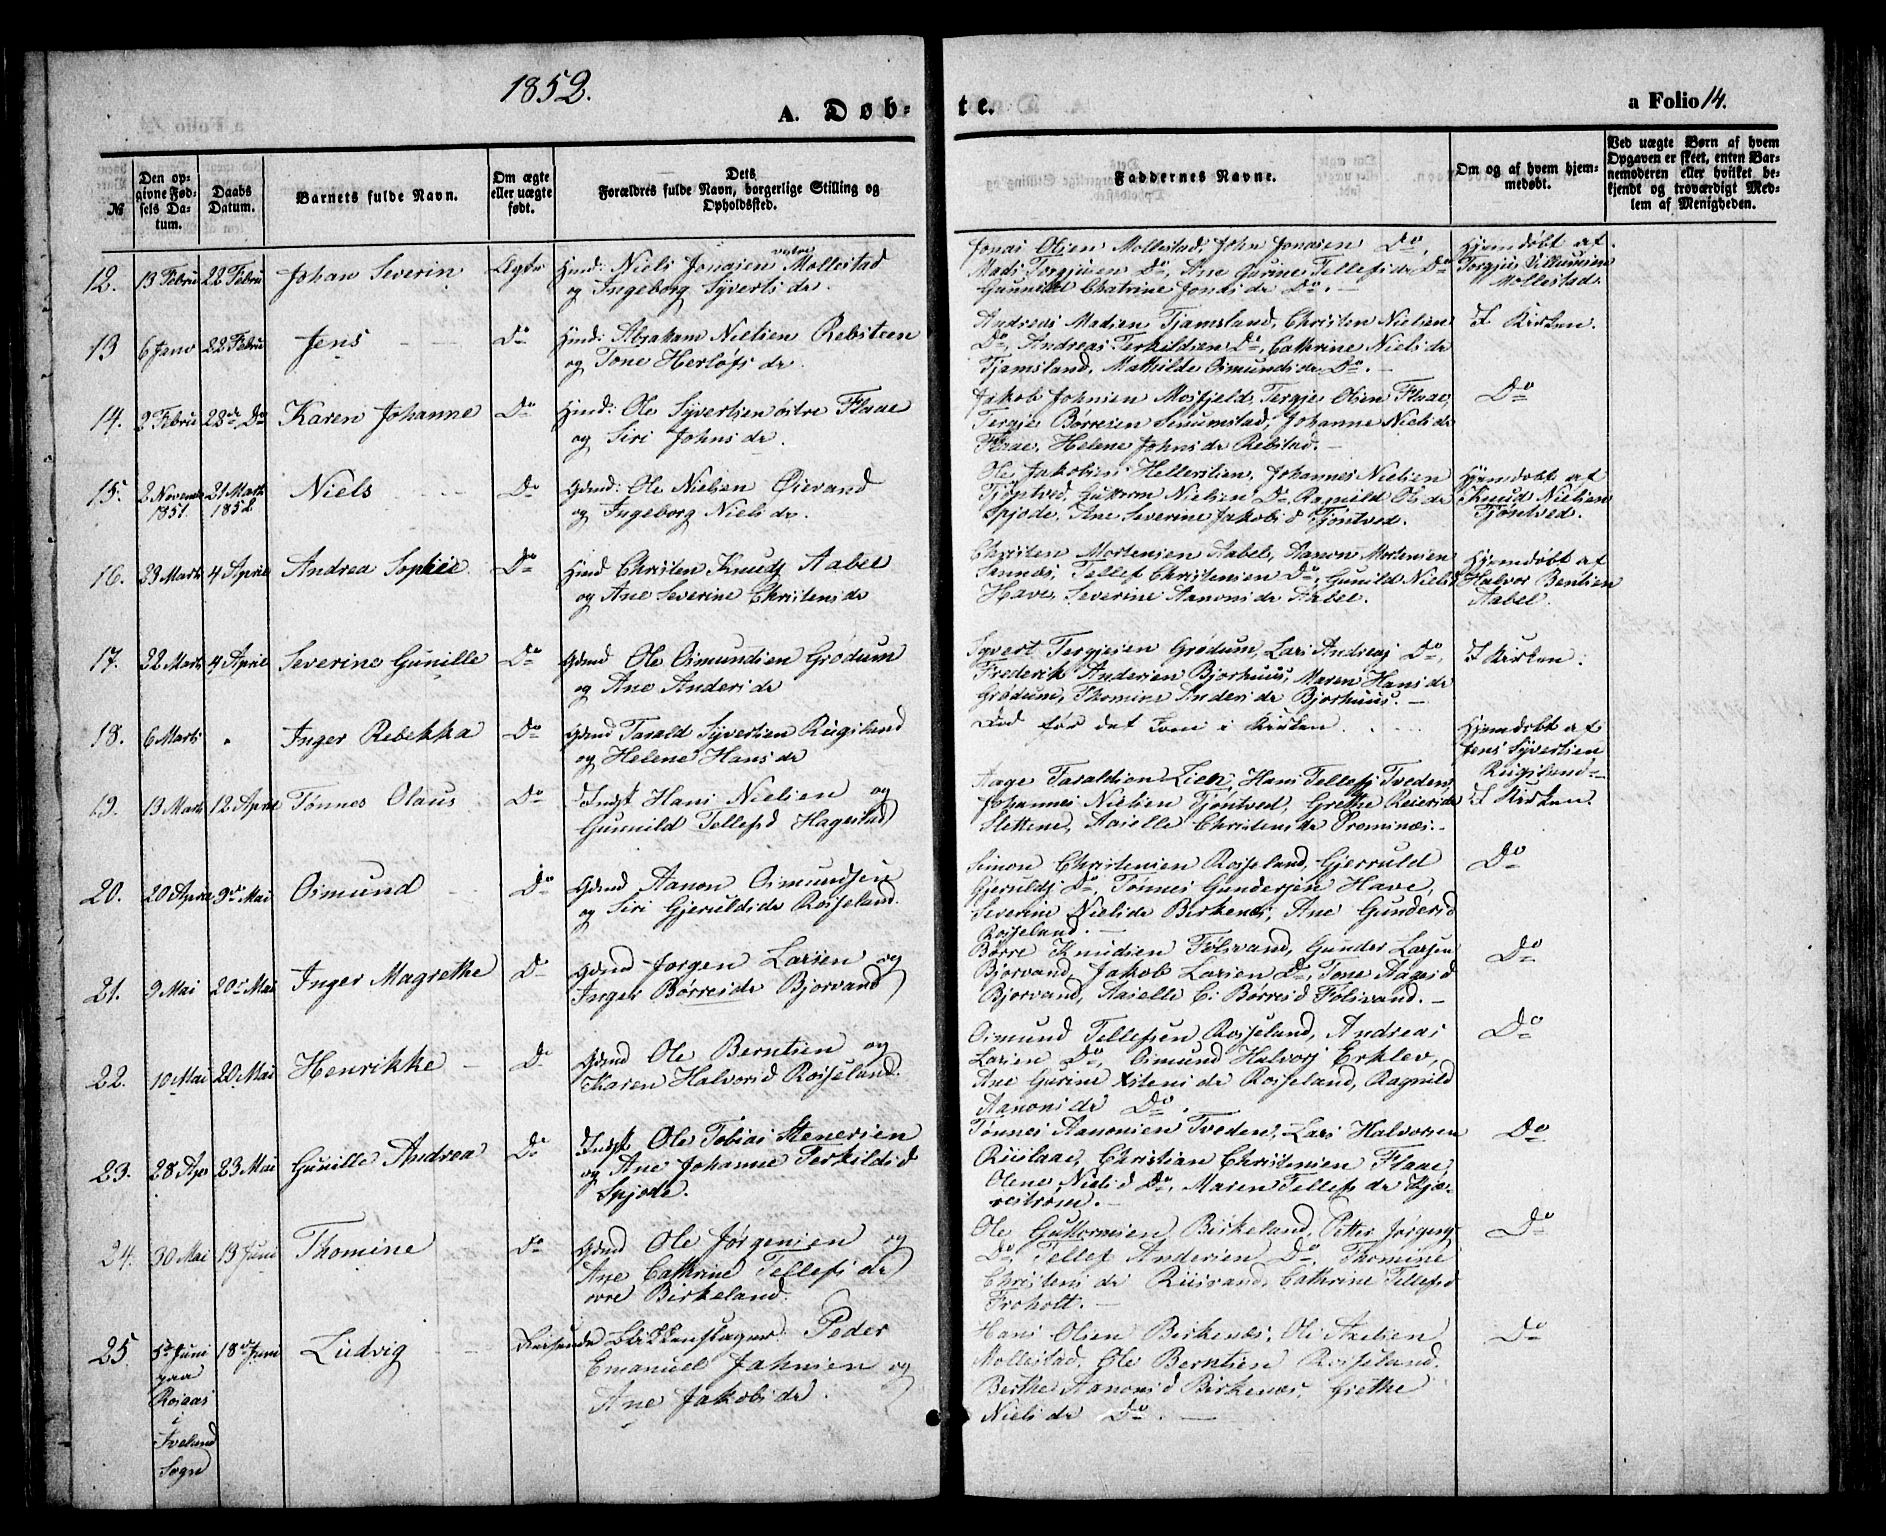 1852.
A. Døb-
te.
a Folio 14.
№
Den op-
givne Fød-
sels Da-
tum.
Daabs
Datum.
Barnets fulde Navn.
Om ægte
eller uægte
født.
Dets
Forældres fulde Navn, borgerlige Stilling og
Opholdssted.
Faddernes Navne.
Om og af hvem hjem-
medøbt.
Ved uægte Børn af hvem
Opgaven er skeet, enten Bar-
nemoderen eller hvilket be-
kjendt og troværdigt Med-
lem af Menigheden.
12. 13 Febru 22 Febru Johan Severin Ægte
Hmd: Niels Jonasen vestre Mollestad
og Ingeborg Syvertsdr.
Jonas Olsen Mollestad, John Jonasen Do,
Mads Torgjusen Do, Ane Gurine Tellefsdr Do
Gunnild Chatrine Jonasdr Do. —
Hjemdøbt af
Torgjus Villumsen
Mollestad.
13 6 Janv 22 Febru Jens Do
Hmd: Abraham Nielsen Rebsteen
og Tone Herløfsdr.
Andreas Madsen Tjamsland, Christen Nielsen
Do, Andreas Terkildsen Do, Cathrine Nielsdr
Tjamsland, Mathilde Osmundsdr Do. —
I Kirken.
14. 2 Febru 28de Do Karen Johanne Do
Hmd: Ole Syvertsen østre Flaae
og Siri Johnsdr.
Jakob Johnsen Mosfjeld, Tergjes Olsen Flaae,
Tergjes Børresen Senumstad, Johanne Nielsdr
Flaae, Helene Johnsdr Rebstad. —
Do
15. 2 Novemb 21 Marts Niels Do
1851. 1852
Gdmd: Ole Nielsen Øievand
og Ingeborg Nielsdr.
Ole Jakobsen Hellerslien, Johannes Nielsen
Tjøntved, Guttorm Nielsen Do, Ragnild Olsdr
Spjode, Ane Severine Jakobsd Tjøntved.
Hjemdøbt af
Knud Nielsen
Tjøntved.
16. 23 Marts 4 April Andrea Sophie Do
Hmd Christen Knuds Aabel
og Ane Severine Christensdr
Christen Mortensen Aabel, Aanon Mortensen
Sannes, Tellef Christensen Do, Gunild Nielsd
Have, Severine Aanonsdr Aabel.
Hjemdøbt af
Halvor Bentsen
Aabel.
17. 22 Marts 4 April Severine Gunille Do
Gdmd Ole Osmundsen Grødum
og Ane Andersdr
Syvert Tergjesen Grødum, Lars Andreas Do,
Frederik Andersen Bjorhuus, Maren Hansdr
Grødum, Thomine Andersdr Bjorhuus. —
I Kirken.
18. 6 Marts " Inger Rebekka Do
Gdmd Tarald Syvertsen Rugsland
og Helene Hansdr
Død før det kom i Kirken
Hjemdøbt af
Jens Syvertsen
Rugsland
19. 13 Marts 12 April Tønnes Olaus Do
Indst Hans Nielsen og
Gunnild Tellefsd Hagestad
Aage Taraldsen Lien, Hans Tellefs Tveden,
Johannes Nielsen Tjøntved, Grethe Reiersdr
Slettene, Aaselle Christensdr Prominæs. —
I Kirken.
20. 20 April 9de Mai Osmund Do
Gdmd Aanon Osmundsen
og Siri Gjeruldsdr Rosseland.
Simon Christensen Rosseland, Gjerruld
Gjerulds Do, Tønnes Gundersen Have,
Severine Nielsdr Birkenæs, Ane Gundersd
Rosseland. —
Do
21. 9 Mai 20de Mai Inger Magrethe Do
Gdmd Jorgen Larsen og
Inger Børresdr Bjorvand
Børre Knudsen Følsvand, Gunder Larsen
Bjorvand, Jakob Larsen Do, Tone Aagesd
Bjorvand, Aaselle C: Børresd Følsvand. —
Do
22. 10 Mai 20 Mai Henrikke Do
Gdmd Ole Berntsen og
Karen Halvorsd Rosseland.
Osmund Tellefsen Rosseland, Andreas
Larsen Do, Osmund Halvors Erklev,
Ane Gurine Xstensdr Rosseland, Ragnild
Aanonsdr Do.
Do
23. 28 Apr 23 Mai Gunille Andrea Do
Indst Ole Tobias Stenersen
og Ane Johanne Terkildsd
Spjode.
Tønnes Aanonsen Tveden, Lars Halvorsen
Riislaae, Christian Christensen Flaae,
Olene Nielsd Do, Maren Tellefsdr Kjæ-
restrøm. —
Do
24. 30 Mai 13 Juni Thomine Do
Gdmd Ole Jørgensen og
Ane Cathrine Tellefsdr
øvre Birkeland.
Ole Guttormsen Birkeland, Petter Jørgens
Do, Tellef Andersen Do, Thomine
Christensdr Riisvand, Cathrine Tellefsd
Froholt. —
Do
25. 5te Juni 18de Juni Ludvig
paa
Rosaas
i
Iveland
Sogn
Blikkenslager Peder
Emanuel Johnsen og
Ane Jakobsdr.
Hans Olsen Birkenæs, Ole Axelsen
Mollestad, Ole Berntsen Rosseland.
Berthe Aanonsd Birkenæs, Grethe
Nielsdr Do. —
Do